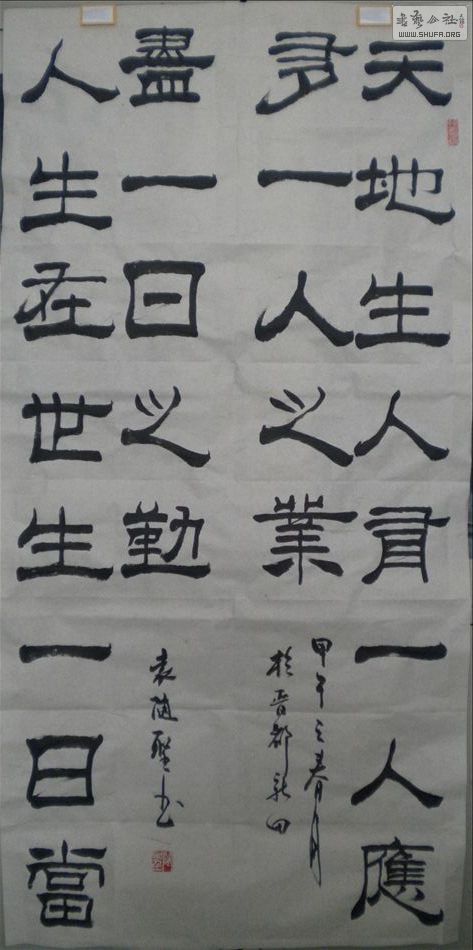 書藝公社
WWW.SHUFA.ORG
天地生人有一人應
有一人之業
甲午之春月
於晋都新田
人生在世生一日當
盡一日之勤
袁随书